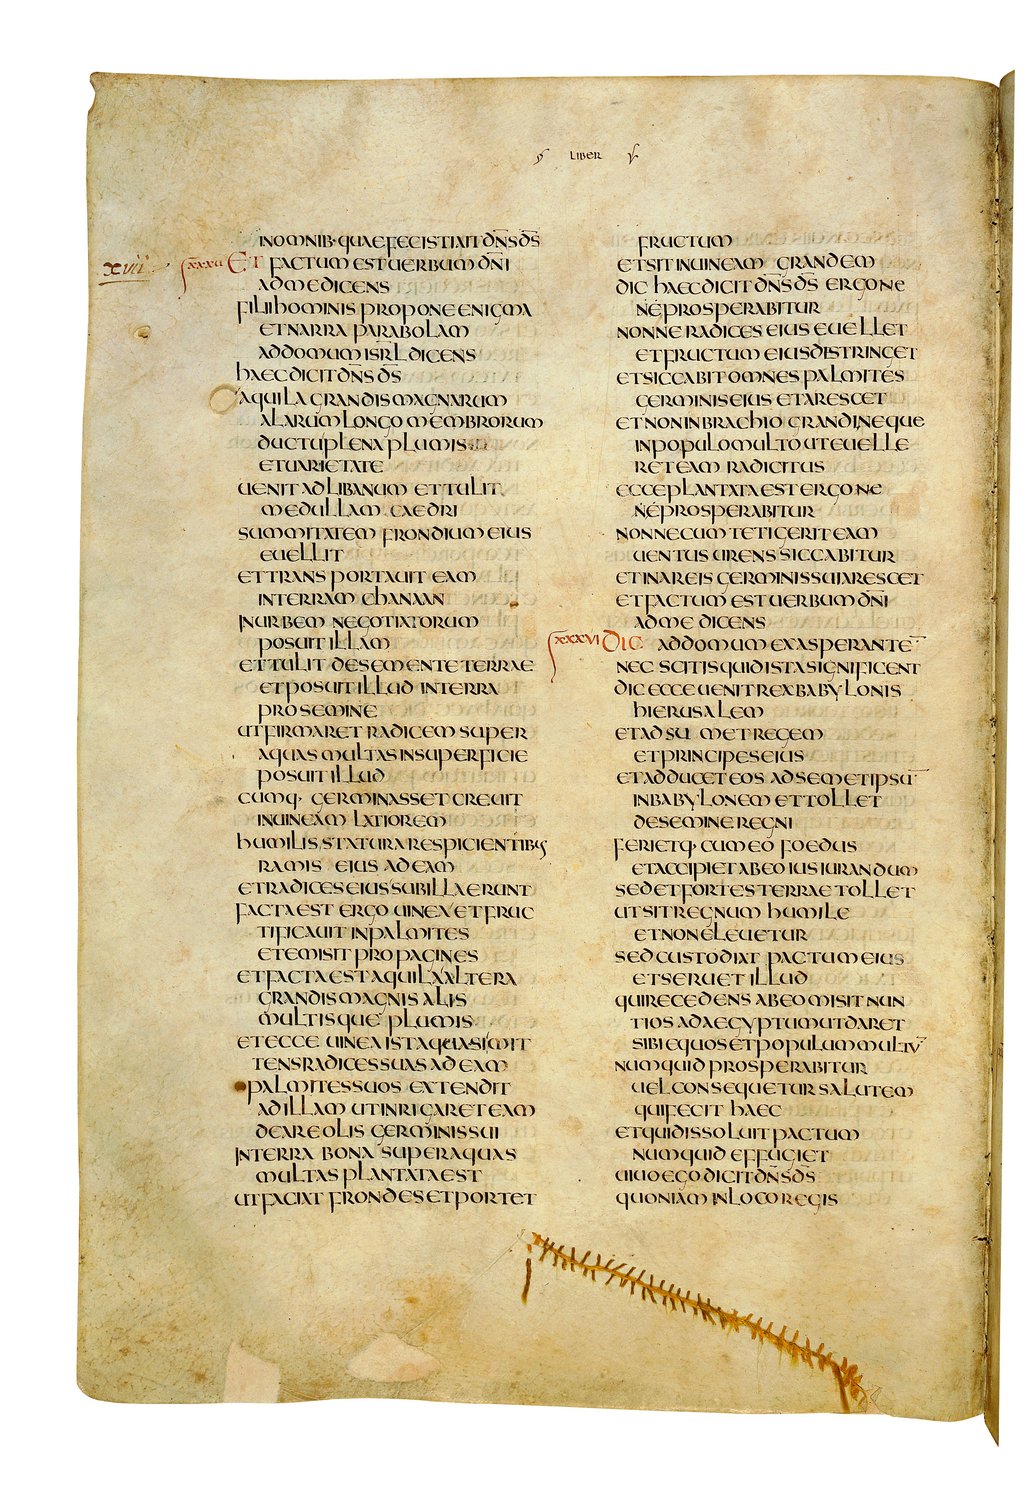 LIBER
IN OMNIB· QUAE FECISTI AIT DN̄S DS̄
XVII
XXXV ET FACTUM EST UERBUM DN̄I
AD ME DICENS
FILII HOMINIS PROPONE ENIGMA
ET NARRA PARABOLAM
AD DOMUM ISRL̄ DICENS
HAEC DICIT DN̄S DS̄
AQUILA GRANDIS MAGNARUM
ALARUM LONGO MEMBRORUM
DUCTU PLENA PLUMIS
ET UARIETATE
UENIT AD LIBANUM ET TULIT
MEDULLAM CAEDRI
SUMMITATEM FRONDIUM EIUS
EUELLIT
ET TRANSPORTAUIT EAM
IN TERRAM CHANAAN
IN URBEM NEGOTIATORUM
POSUIT ILLAM
ET TULIT DE SEMENTE TERRAE
ET POSUIT ILLUD IN TERRA
PRO SEMINE
UT FIRMARET RADICEM SUPER
AQUAS MULTAS IN SUPERFICIE
POSUIT ILLUD
CUMQ· GERMINASSET CREUIT
IN UINEAM LATIOREM
HUMILIS STATURA RESPICIENTIBUS
RAMIS EIUS AD EAM
ET RADICES EIUS SUB ILLA ERUNT
FACTA EST ERGO UINEA ET FRUC
TIFICAUIT IN PALMITES
ET EMISIT PROPAGINES
ET FACTA EST AQUILA ALTERA
GRANDIS MAGNIS ALIS
MULTISQUE PLUMIS
ET ECCE UINEA ISTA QUASI MIT
TENS RADICES SUAS AD EAM
PALMITES SUOS EXTENDIT
AD ILLAM UT INRIGARET EAM
DE AREOLIS GERMINIS SUI
IN TERRA BONA SUPER AQUAS
MULTAS PLANTATA EST
UT FACIAT FRONDES ET PORTET
FRUCTUM
ET SIT IN UINEAM GRANDEM
DIC HAEC DICIT DN̄S DS̄ ERGONE
NE PROSPERABITUR
NONNE RADICES EIUS EUELLET
ET FRUCTUM EIUS DISTRINGET
ET SICCABIT OMNES PALMITES
GERMINIS EIUS ET ARESCET
ET NON IN BRACHIO GRANDI NEQUE
IN POPULO MULTO UT EUELLE
RET EAM RADICITUS
ECCE PLANTATA EST ERGONE
NE PROSPERABITUR
NONNE CUM TETIGERIT EAM
UENTUS URENS SICCABITUR
ET IN AREIS GERMINIS SUI ARESCET
ET FACTUM EST UERBUM DN̄I
AD ME DICENS
XXXVI DIC AD DOMUM EXASPERANTE¯
NESCITIS QUID ISTA SIGNIFICENT
DIC ECCE UENIT REX BABYLONIS
HIERUSALEM
ET ADSUMET REGEM
ET PRINCIPES EIUS
ET ADDUCET EOS AD SEMETIPSU¯
IN BABYLONEM ET TOLLET
DE SEMINE REGNI
FERIETQ· CUM EO FOEDUS
ET ACCIPIET AB EO IUSIURANDUM
SED ET FORTES TERRAE TOLLET
UT SIT REGNUM HUMILE
ET NON ELEUETUR
SED CUSTODIAT PACTUM EIUS
ET SERUET ILLUD
QUI RECEDENS AB EO MISIT NUN
TIOS AD AEGYPTUM UT DARET
SIBI EQUOS ET POPULUM MULTU¯
NUMQUID PROSPERABITUR
UEL CONSEQUETUR SALUTEM
QUI FECIT HAEC
ET QUI DISSOLUIT PACTUM
NUMQUID EFFUGIET
UIUO EGO DICIT DN̄S DS̄
QUONIAM IN LOCO REGIS